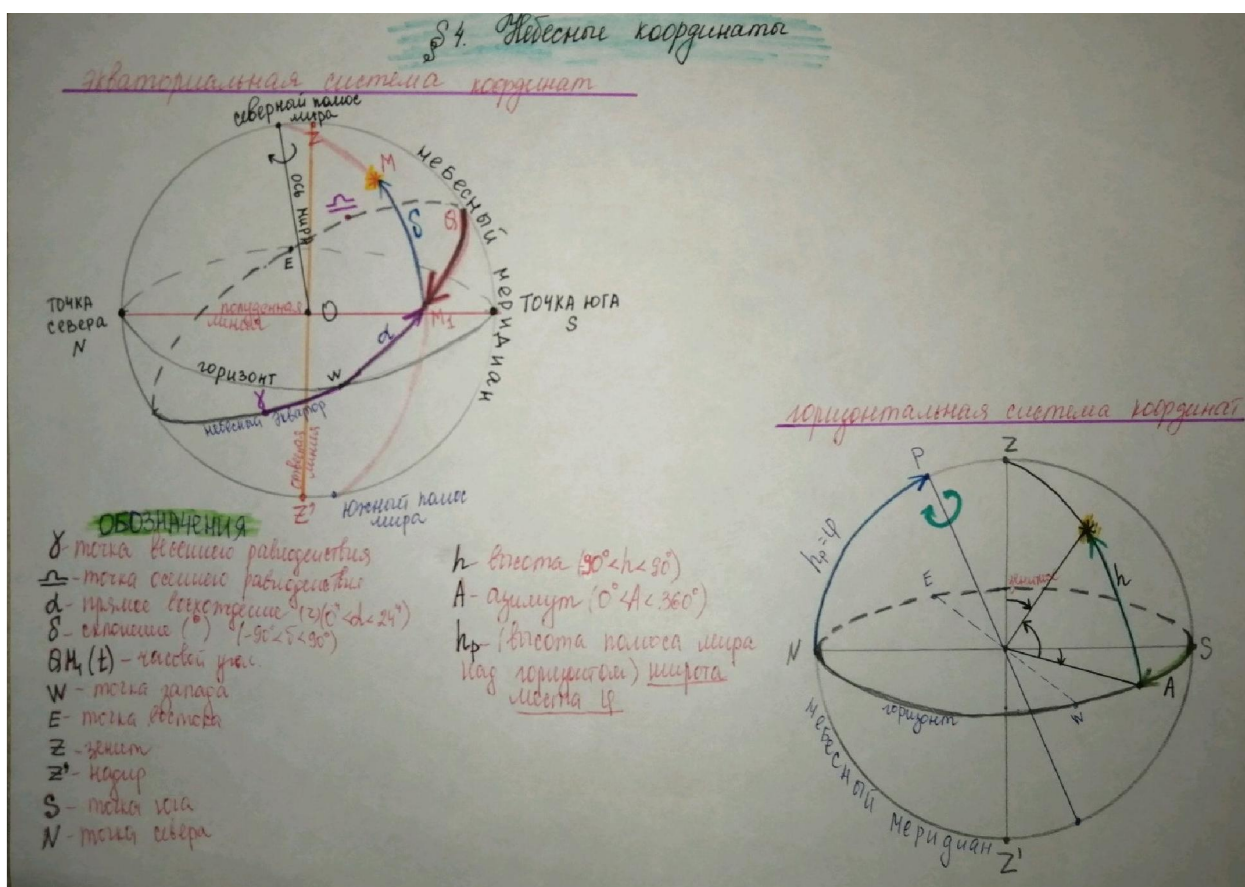 §4. Небесные координаты
экваториальная система координат
северный полюс
мира
Z
M
небесный меридиан
ось мира
♎
δ
Q
E
ТОЧКА
СЕВЕРА
N
полуденная
линия
O
M₁
ТОЧКА ЮГА
S
α
горизонт
W
γ
небесный экватор
отвесная
линия
Z'
южный полюс
мира
ОБОЗНАЧЕНИЯ
γ - точка весеннего равноденствия
♎ - точка осеннего равноденствия
α - прямое восхождение (ч) (0ʰ<α<24ʰ)
δ - склонение (°) (-90°<δ<90°)
QM₁(t) - часовой угол.
W - точка запада
E - точка востока
Z - зенит
Z' - надир
S - точка юга
N - точка севера
h - высота (90°<h<90°)
A - азимут (0°<A<360°)
hp - (высота полюса мира
над горизонтом) широта
места φ
горизонтальная система координат
Z
P
hp=φ
E
h
N
S
A
W
горизонт
небесный меридиан
Z'